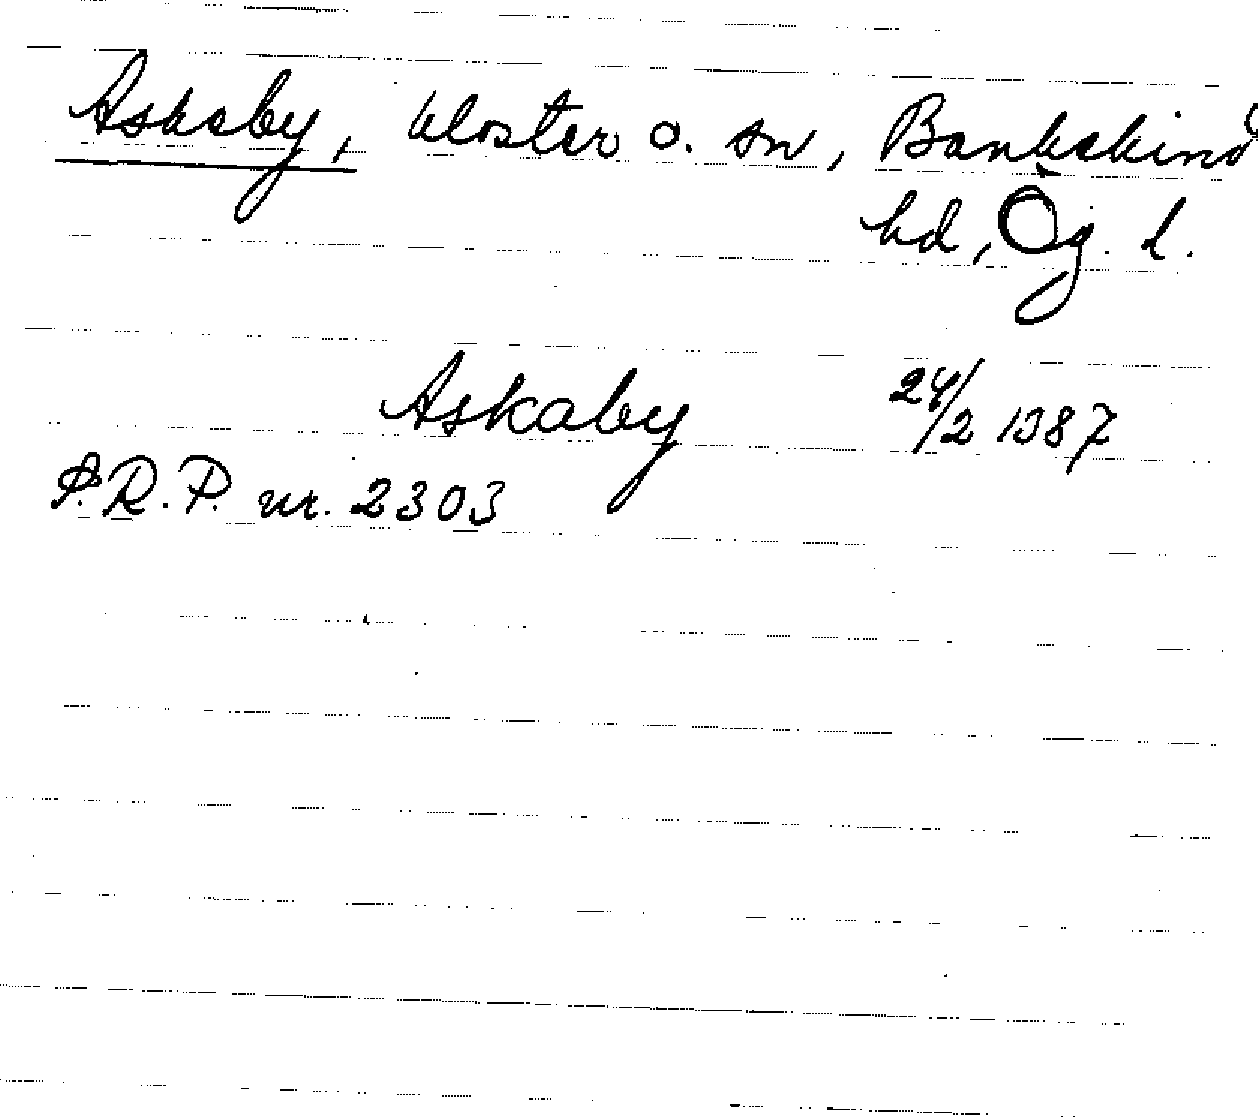 Askaby, kloster o. sn, Bankekind
hd, Ög. l.
Askaby 24/2 1387
P.R.P. nr. 2303